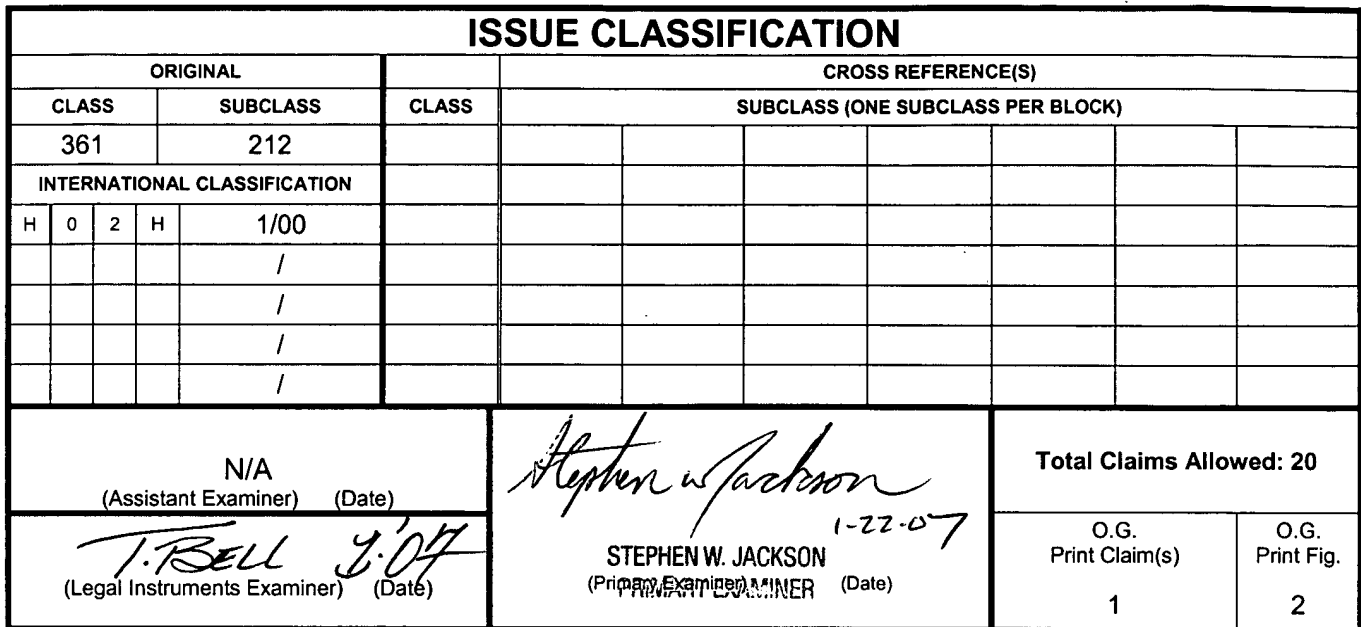 ISSUE CLASSIFICATION
ORIGINAL
CROSS REFERENCE(S)
CLASS SUBCLASS CLASS SUBCLASS (ONE SUBCLASS PER BLOCK)
361 212
INTERNATIONAL CLASSIFICATION
H 0 2 H 1/00
/
/
/
/
N/A
(Assistant Examiner) (Date)
T. BELL
(Legal Instruments Examiner) (Date)
Stephen W Jackson
1-22-07
STEPHEN W. JACKSON
(Primary Examiner) (Date)
PRIMARY EXAMINER
Total Claims Allowed: 20
O.G.
Print Claim(s)
1
O.G.
Print Fig.
2